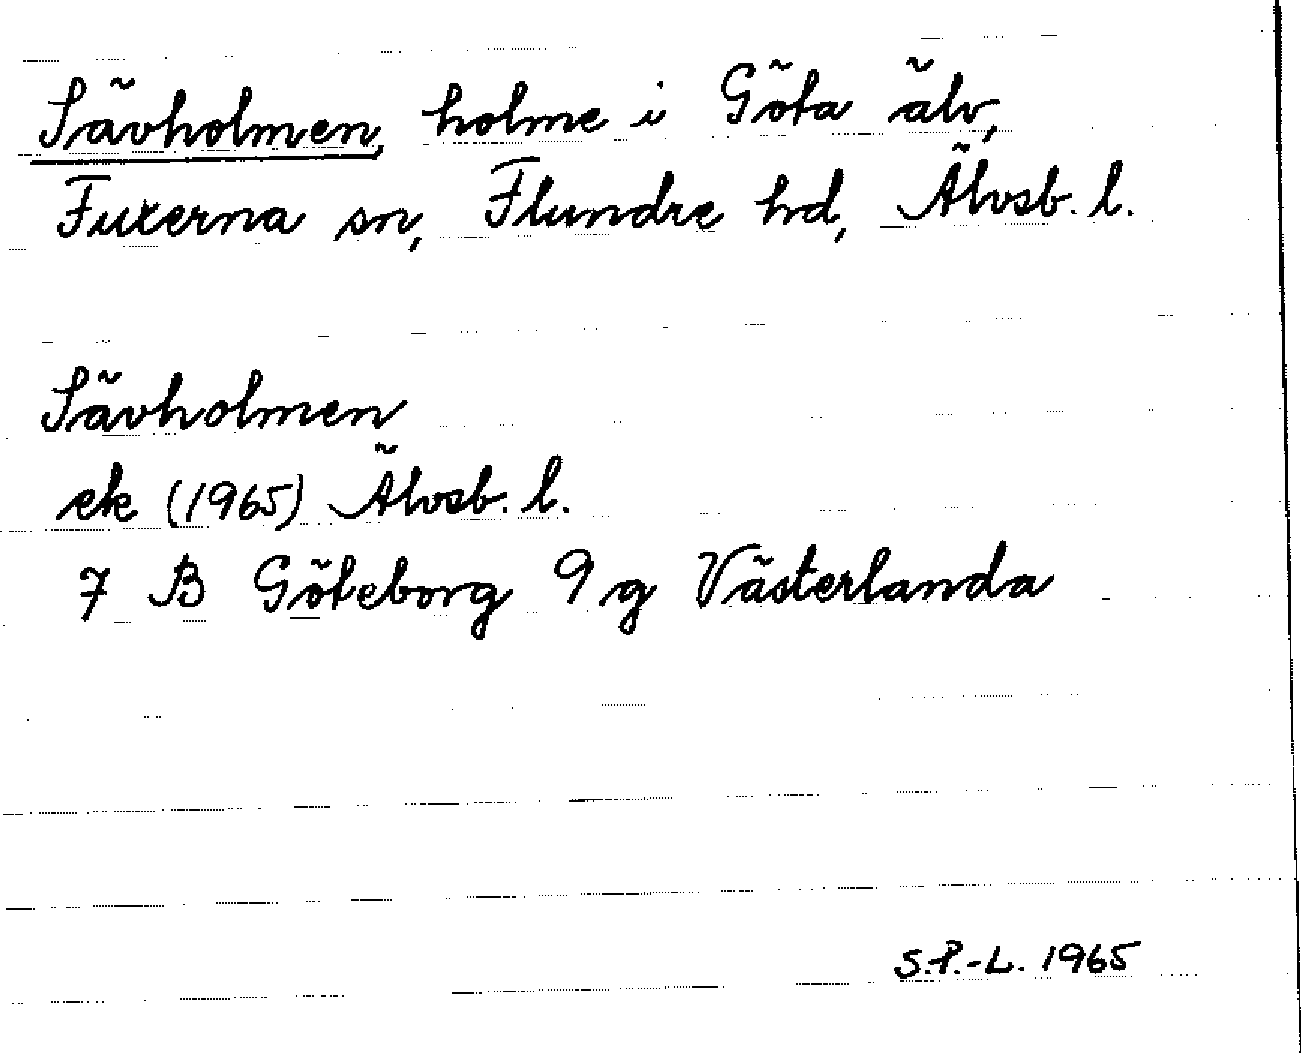 Sävholmen, holme i Göta älv,
Fuxerna sn, Flundre hd, Älvsb. l.
Sävholmen
ek (1965) Älvsb. l.
7 B Göteborg 9 g Västerlanda
S.P.-L. 1965